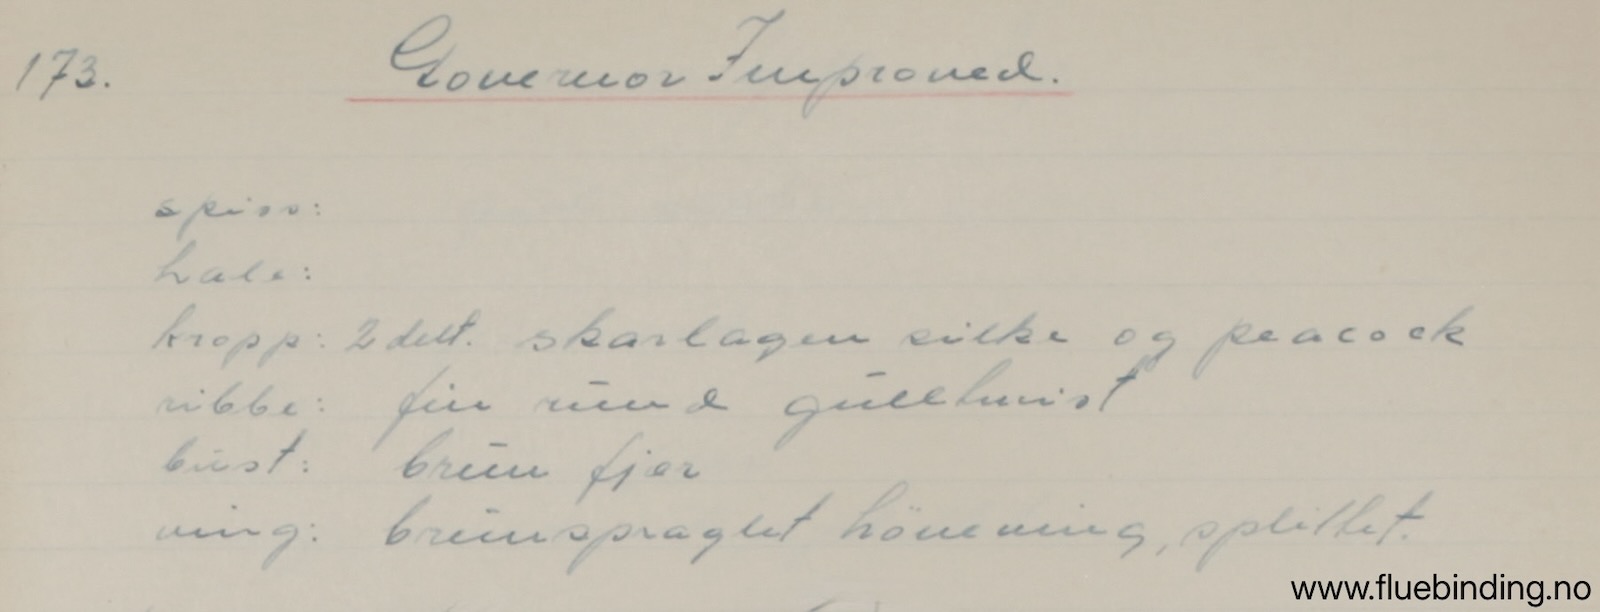 173. Governor Improved.
spiss:
hale:
kropp: 2 delt. skarlagen silke og peacock
ribbe: fin rund gulltwist
bust: brun fjær
ving: brunspraglet höneving, splittet.
www.fluebinding.no